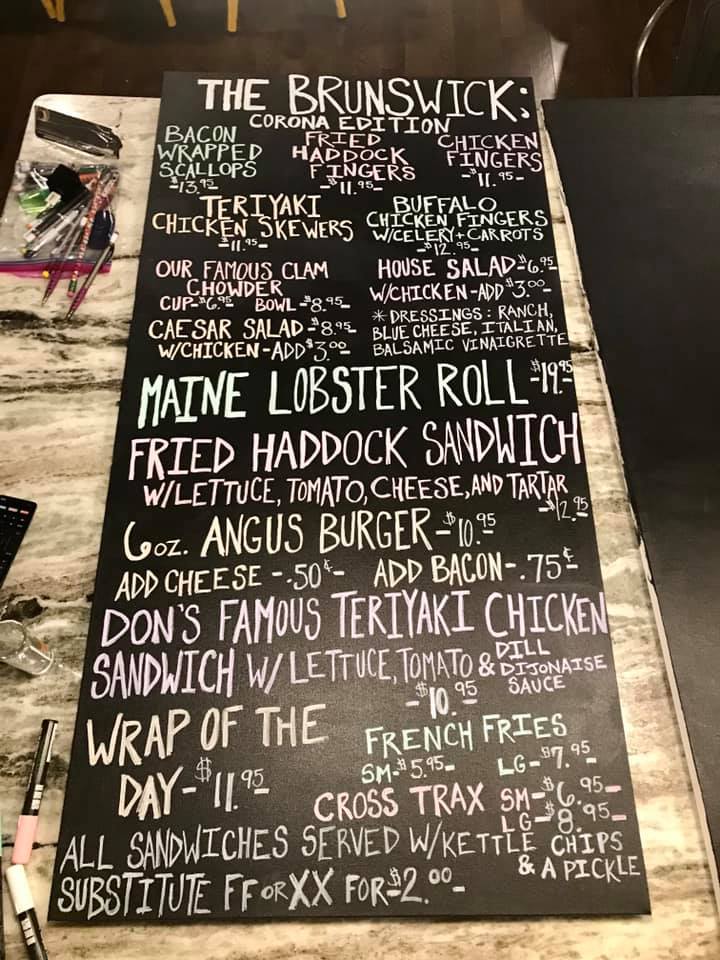 THE BRUNSWICK:
CORONA EDITION
BACON
WRAPPED
SCALLOPS
-$13.95-
FRIED
HADDOCK
FINGERS
-$11.95-
CHICKEN
FINGERS
-$11.95-
TERIYAKI
CHICKEN SKEWERS
-$11.95-
BUFFALO
CHICKEN FINGERS
W/CELERY+CARROTS
-$12.95-
OUR FAMOUS CLAM
CHOWDER
CUP-$6.95 BOWL-$8.95-
HOUSE SALAD-$6.95-
W/CHICKEN-ADD $3.00-
* DRESSINGS: RANCH,
BLUE CHEESE, ITALIAN,
BALSAMIC VINAIGRETTE
CAESAR SALAD-$8.95-
W/CHICKEN-ADD $3.00-
MAINE LOBSTER ROLL-$19.95-
FRIED HADDOCK SANDWICH
W/LETTUCE, TOMATO, CHEESE, AND TARTAR
-$12.95
6oz. ANGUS BURGER-$10.95
ADD CHEESE -.50¢- ADD BACON-.75¢-
DON'S FAMOUS TERIYAKI CHICKEN
SANDWICH W/ LETTUCE, TOMATO & DILL DIJONAISE SAUCE
-$10.95-
WRAP OF THE
DAY-$11.95-
FRENCH FRIES
SM-$5.95- LG-$7.95-
CROSS TRAX SM-$6.95-
LG-$8.95-
ALL SANDWICHES SERVED W/KETTLE CHIPS
& A PICKLE
SUBSTITUTE FF OR XX FOR-$2.00-